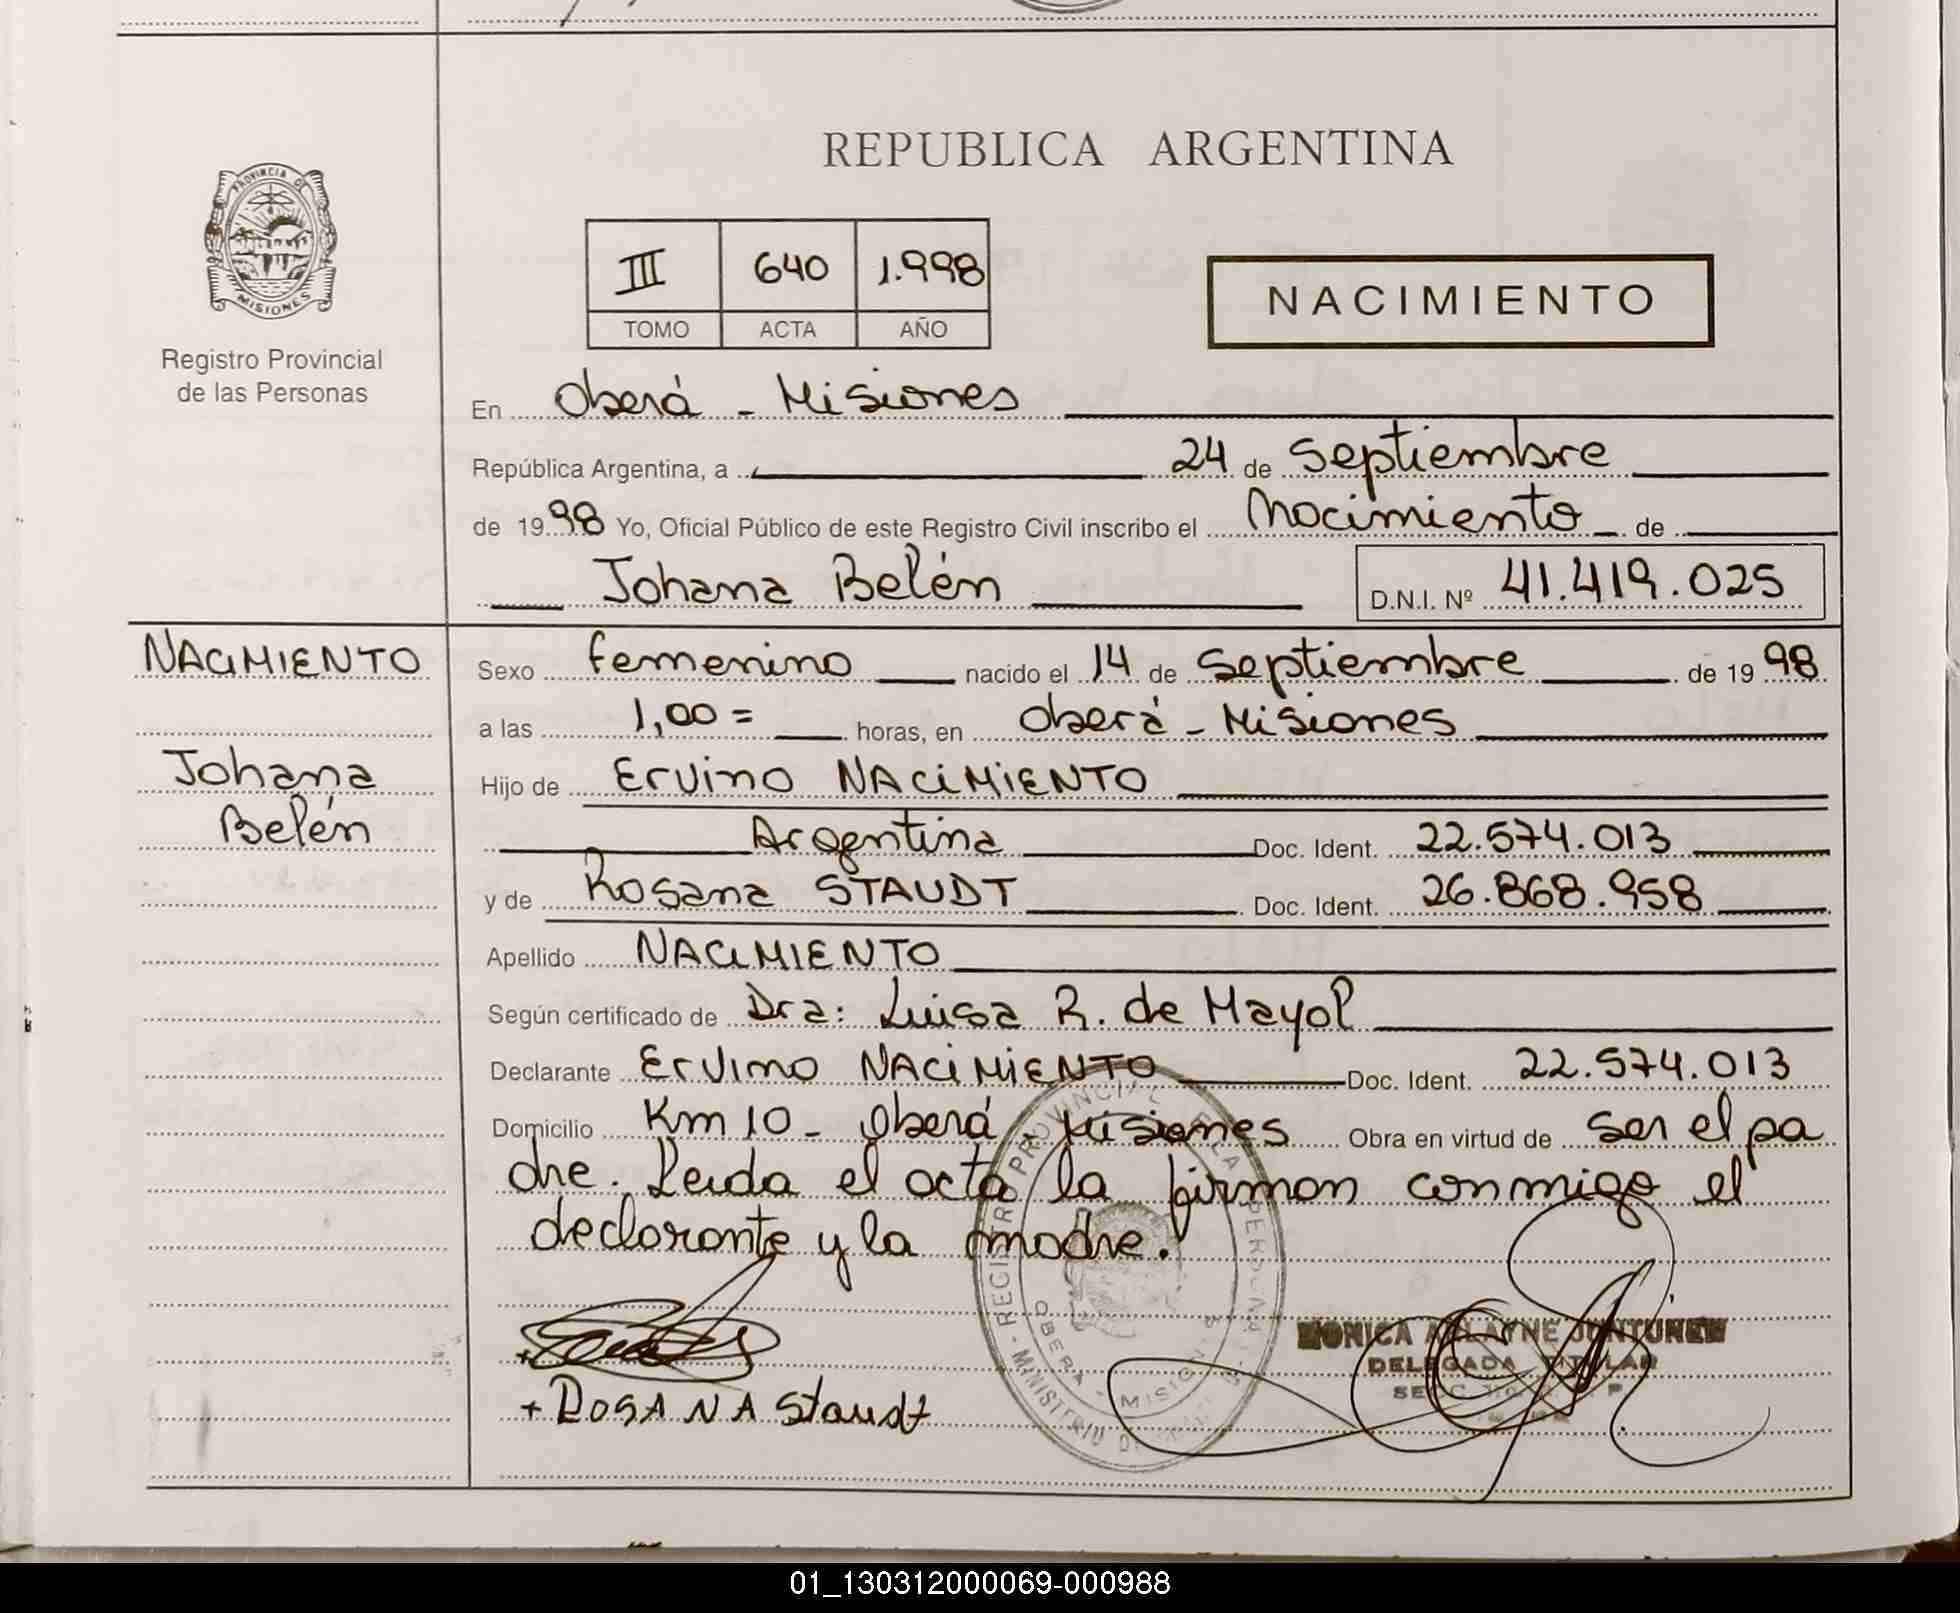 REPUBLICA ARGENTINA
PROVINCIA DE
MISIONES
Registro Provincial
de las Personas
III 640 1.998
TOMO ACTA AÑO
NACIMIENTO
En Oberá - Misiones
República Argentina, a 24 de Septiembre
de 1998 Yo, Oficial Público de este Registro Civil inscribo el Nacimiento de
Johana Belén D.N.I. Nº 41.419.025
NACIMIENTO
Johana
Belén
Sexo femenino nacido el 14 de Septiembre de 1998
a las 1,00 = horas, en Oberá - Misiones
Hijo de Ervino NACIMIENTO
Argentina Doc. Ident. 22.574.013
y de Rosana STAUDT Doc. Ident. 26.868.958
Apellido NACIMIENTO
Según certificado de Dra: Luisa R. de Mayol
Declarante Ervino NACIMIENTO Doc. Ident. 22.574.013
Domicilio Km 10 - Oberá - Misiones Obra en virtud de ser el pa
dre. Leida el acta la firman conmigo el
declarante y la madre.
REGISTRO PROVINCIAL
OBERA - MISIONES
MINISTERIO
+ ROSANA Staudt
MONICA JUNTUNEN
DELEGADA TITULAR
01_130312000069-000988